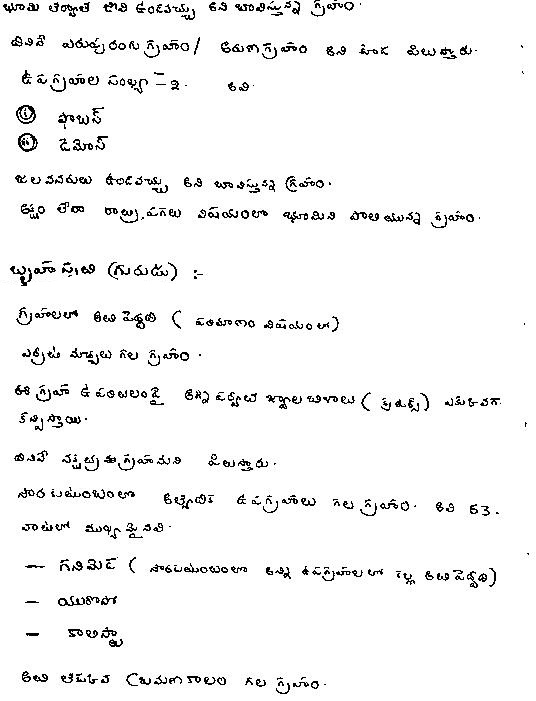 భూమి తర్వాత జీవి ఉండవచ్చు అని భావిస్తున్న గ్రహం.
దీనినే ఎరుపురంగు గ్రహం/ అరుణగ్రహం అని కూడ పిలుస్తారు.
ఉపగ్రహాల సంఖ్య - 2. అవి.
(i) ఫోబస్
(ii) డైమోస్
జలవనరులు ఉండవచ్చు అని భావిస్తున్న గ్రహం.
రాత్రి, పగలు విషయంలో భూమిని పోలియున్న గ్రహం.
బృహస్పతి (గురుడు) :-
గ్రహాలలో అతి పెద్దది ( పరిమాణం విషయంలో)
ఎర్రటి మచ్చలు గల గ్రహం.
ఈ గ్రహ ఉపరితలంపై అగ్ని పర్వత జ్వాల బిలాలు ( ) ఎక్కువగా
కన్పిస్తాయి.
దీనినే నక్షత్ర గ్రహమని పిలుస్తారు.
సౌర కుటుంబంలో అత్యధిక ఉపగ్రహాలు గల గ్రహం. అవి 63.
వాటిలో ముఖ్యమైనవి.
— గనిమెడ ( సౌరకుటుంబంలో అన్ని ఉపగ్రహాలలో కెల్ల అతిపెద్దది)
— యురోపో
— కాలిస్టో
అతి తక్కువ భ్రమణకాలం గల గ్రహం.